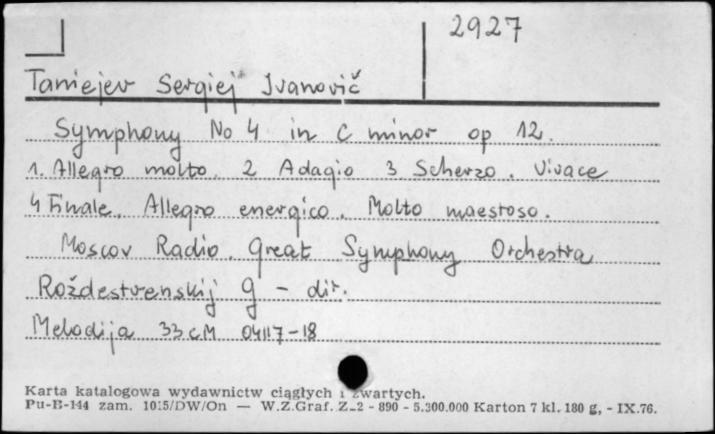 2927
Taniejev Sergiej Ivanovič
Symphony No 4 in C minor op 12.
1. Allegro molto. 2 Adagio 3 Scherzo. Vivace
4 Finale. Allegro energico. Molto maestoso.
Moscov Radio. Great Symphony Orchestra
Roždestvenskij G - dir.
Melodija 33 cM 04117-18
Karta katalogowa wydawnictw ciągłych i zwartych.
Pu-B-144 zam. 1015/DW/On — W.Z.Graf. Z-2 - 890 - 5.300.000 Karton 7 kl. 180 g, - IX.76.